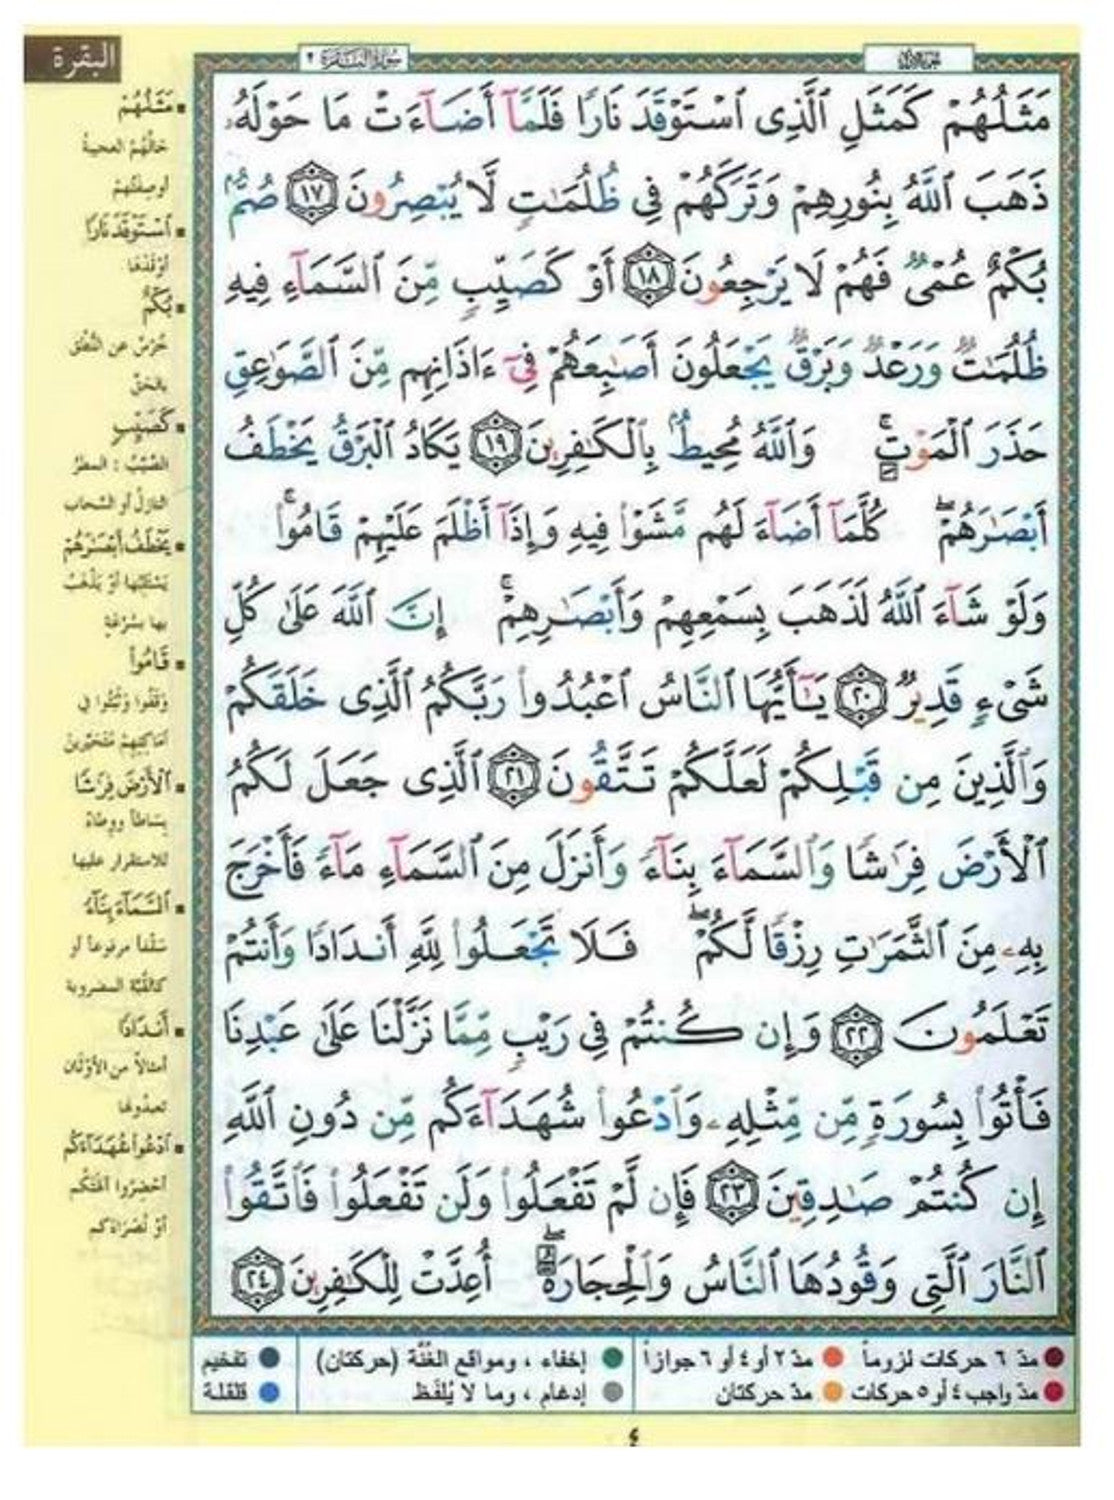 البقرة
سُورَةُ البَقَرَة ٢
الجزء الأول
مَثَلُهُمْ كَمَثَلِ ٱلَّذِى ٱسْتَوْقَدَ نَارًا فَلَمَّآ أَضَآءَتْ مَا حَوْلَهُۥ
ذَهَبَ ٱللَّهُ بِنُورِهِمْ وَتَرَكَهُمْ فِى ظُلُمَٰتٍ لَّا يُبْصِرُونَ ١٧ صُمٌّۢ
بُكْمٌ عُمْىٌ فَهُمْ لَا يَرْجِعُونَ ١٨ أَوْ كَصَيِّبٍ مِّنَ ٱلسَّمَآءِ فِيهِ
ظُلُمَٰتٌ وَرَعْدٌ وَبَرْقٌ يَجْعَلُونَ أَصَٰبِعَهُمْ فِىٓ ءَاذَانِهِم مِّنَ ٱلصَّوَٰعِقِ
حَذَرَ ٱلْمَوْتِ ۚ وَٱللَّهُ مُحِيطٌۢ بِٱلْكَٰفِرِينَ ١٩ يَكَادُ ٱلْبَرْقُ يَخْطَفُ
أَبْصَٰرَهُمْ ۖ كُلَّمَآ أَضَآءَ لَهُم مَّشَوْا۟ فِيهِ وَإِذَآ أَظْلَمَ عَلَيْهِمْ قَامُوا۟ ۚ
وَلَوْ شَآءَ ٱللَّهُ لَذَهَبَ بِسَمْعِهِمْ وَأَبْصَٰرِهِمْ ۚ إِنَّ ٱللَّهَ عَلَىٰ كُلِّ
شَىْءٍ قَدِيرٌ ٢٠ يَٰٓأَيُّهَا ٱلنَّاسُ ٱعْبُدُوا۟ رَبَّكُمُ ٱلَّذِى خَلَقَكُمْ
وَٱلَّذِينَ مِن قَبْلِكُمْ لَعَلَّكُمْ تَتَّقُونَ ٢١ ٱلَّذِى جَعَلَ لَكُمُ
ٱلْأَرْضَ فِرَٰشًا وَٱلسَّمَآءَ بِنَآءً وَأَنزَلَ مِنَ ٱلسَّمَآءِ مَآءً فَأَخْرَجَ
بِهِۦ مِنَ ٱلثَّمَرَٰتِ رِزْقًا لَّكُمْ ۖ فَلَا تَجْعَلُوا۟ لِلَّهِ أَندَادًا وَأَنتُمْ
تَعْلَمُونَ ٢٢ وَإِن كُنتُمْ فِى رَيْبٍ مِّمَّا نَزَّلْنَا عَلَىٰ عَبْدِنَا
فَأْتُوا۟ بِسُورَةٍ مِّن مِّثْلِهِۦ وَٱدْعُوا۟ شُهَدَآءَكُم مِّن دُونِ ٱللَّهِ
إِن كُنتُمْ صَٰدِقِينَ ٢٣ فَإِن لَّمْ تَفْعَلُوا۟ وَلَن تَفْعَلُوا۟ فَٱتَّقُوا۟
ٱلنَّارَ ٱلَّتِى وَقُودُهَا ٱلنَّاسُ وَٱلْحِجَارَةُ ۖ أُعِدَّتْ لِلْكَٰفِرِينَ ٢٤
مَثَلُهُمْ
حَالُهُمْ العجيبةُ
أو صِفَتُهمْ
ٱسْتَوْقَدَ نَارًا
أَوْقَدَهَا
بُكْمٌ
خُرْسٌ عن النُّطْقِ
بالحقِّ
كَصَيِّبٍ
الصَّيِّبُ : المطرُ
النازلُ أو السَّحاب
يَخْطَفُ أَبْصَٰرَهُمْ
يَسْتَلِبُها أوْ يَذْهَبُ
بها بسُرْعَةٍ
قَامُوا۟
وَقَفُوا وَثَبَتُوا في
أمَاكِنِهِمْ مُتَحَيِّرِينَ
ٱلْأَرْضَ فِرَٰشًا
بِسَاطاً ووِطاءً
للاستقرار عليها
ٱلسَّمَآءَ بِنَآءً
سَقْفاً مرفوعاً أو
كالقُبَّة المضروبة
أَندَادًا
أمثالاً من الأوْثَان
تعبدُونها
ٱدْعُوا۟ شُهَدَآءَكُم
أحْضِرُوا آلهَتَكُم
أوْ نُصَرَاءَكم
مدّ ٦ حركات لزوماً
مدّ ٢ أو ٤ أو ٦ جوازاً
إخفاء ، ومواقع الغُنَّة (حركتان)
تفخيم
مدّ واجب ٤ أو ٥ حركات
مدّ حركتان
إدغام ، وما لا يُلفَظ
قلقلة
٤